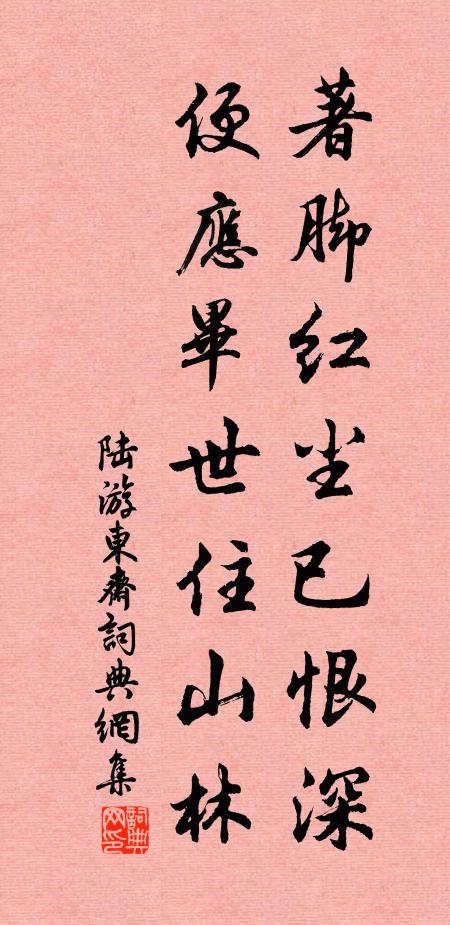 著脚红尘已恨深
便應畢世住山林
陆游東齋詞典網集
詞典网印